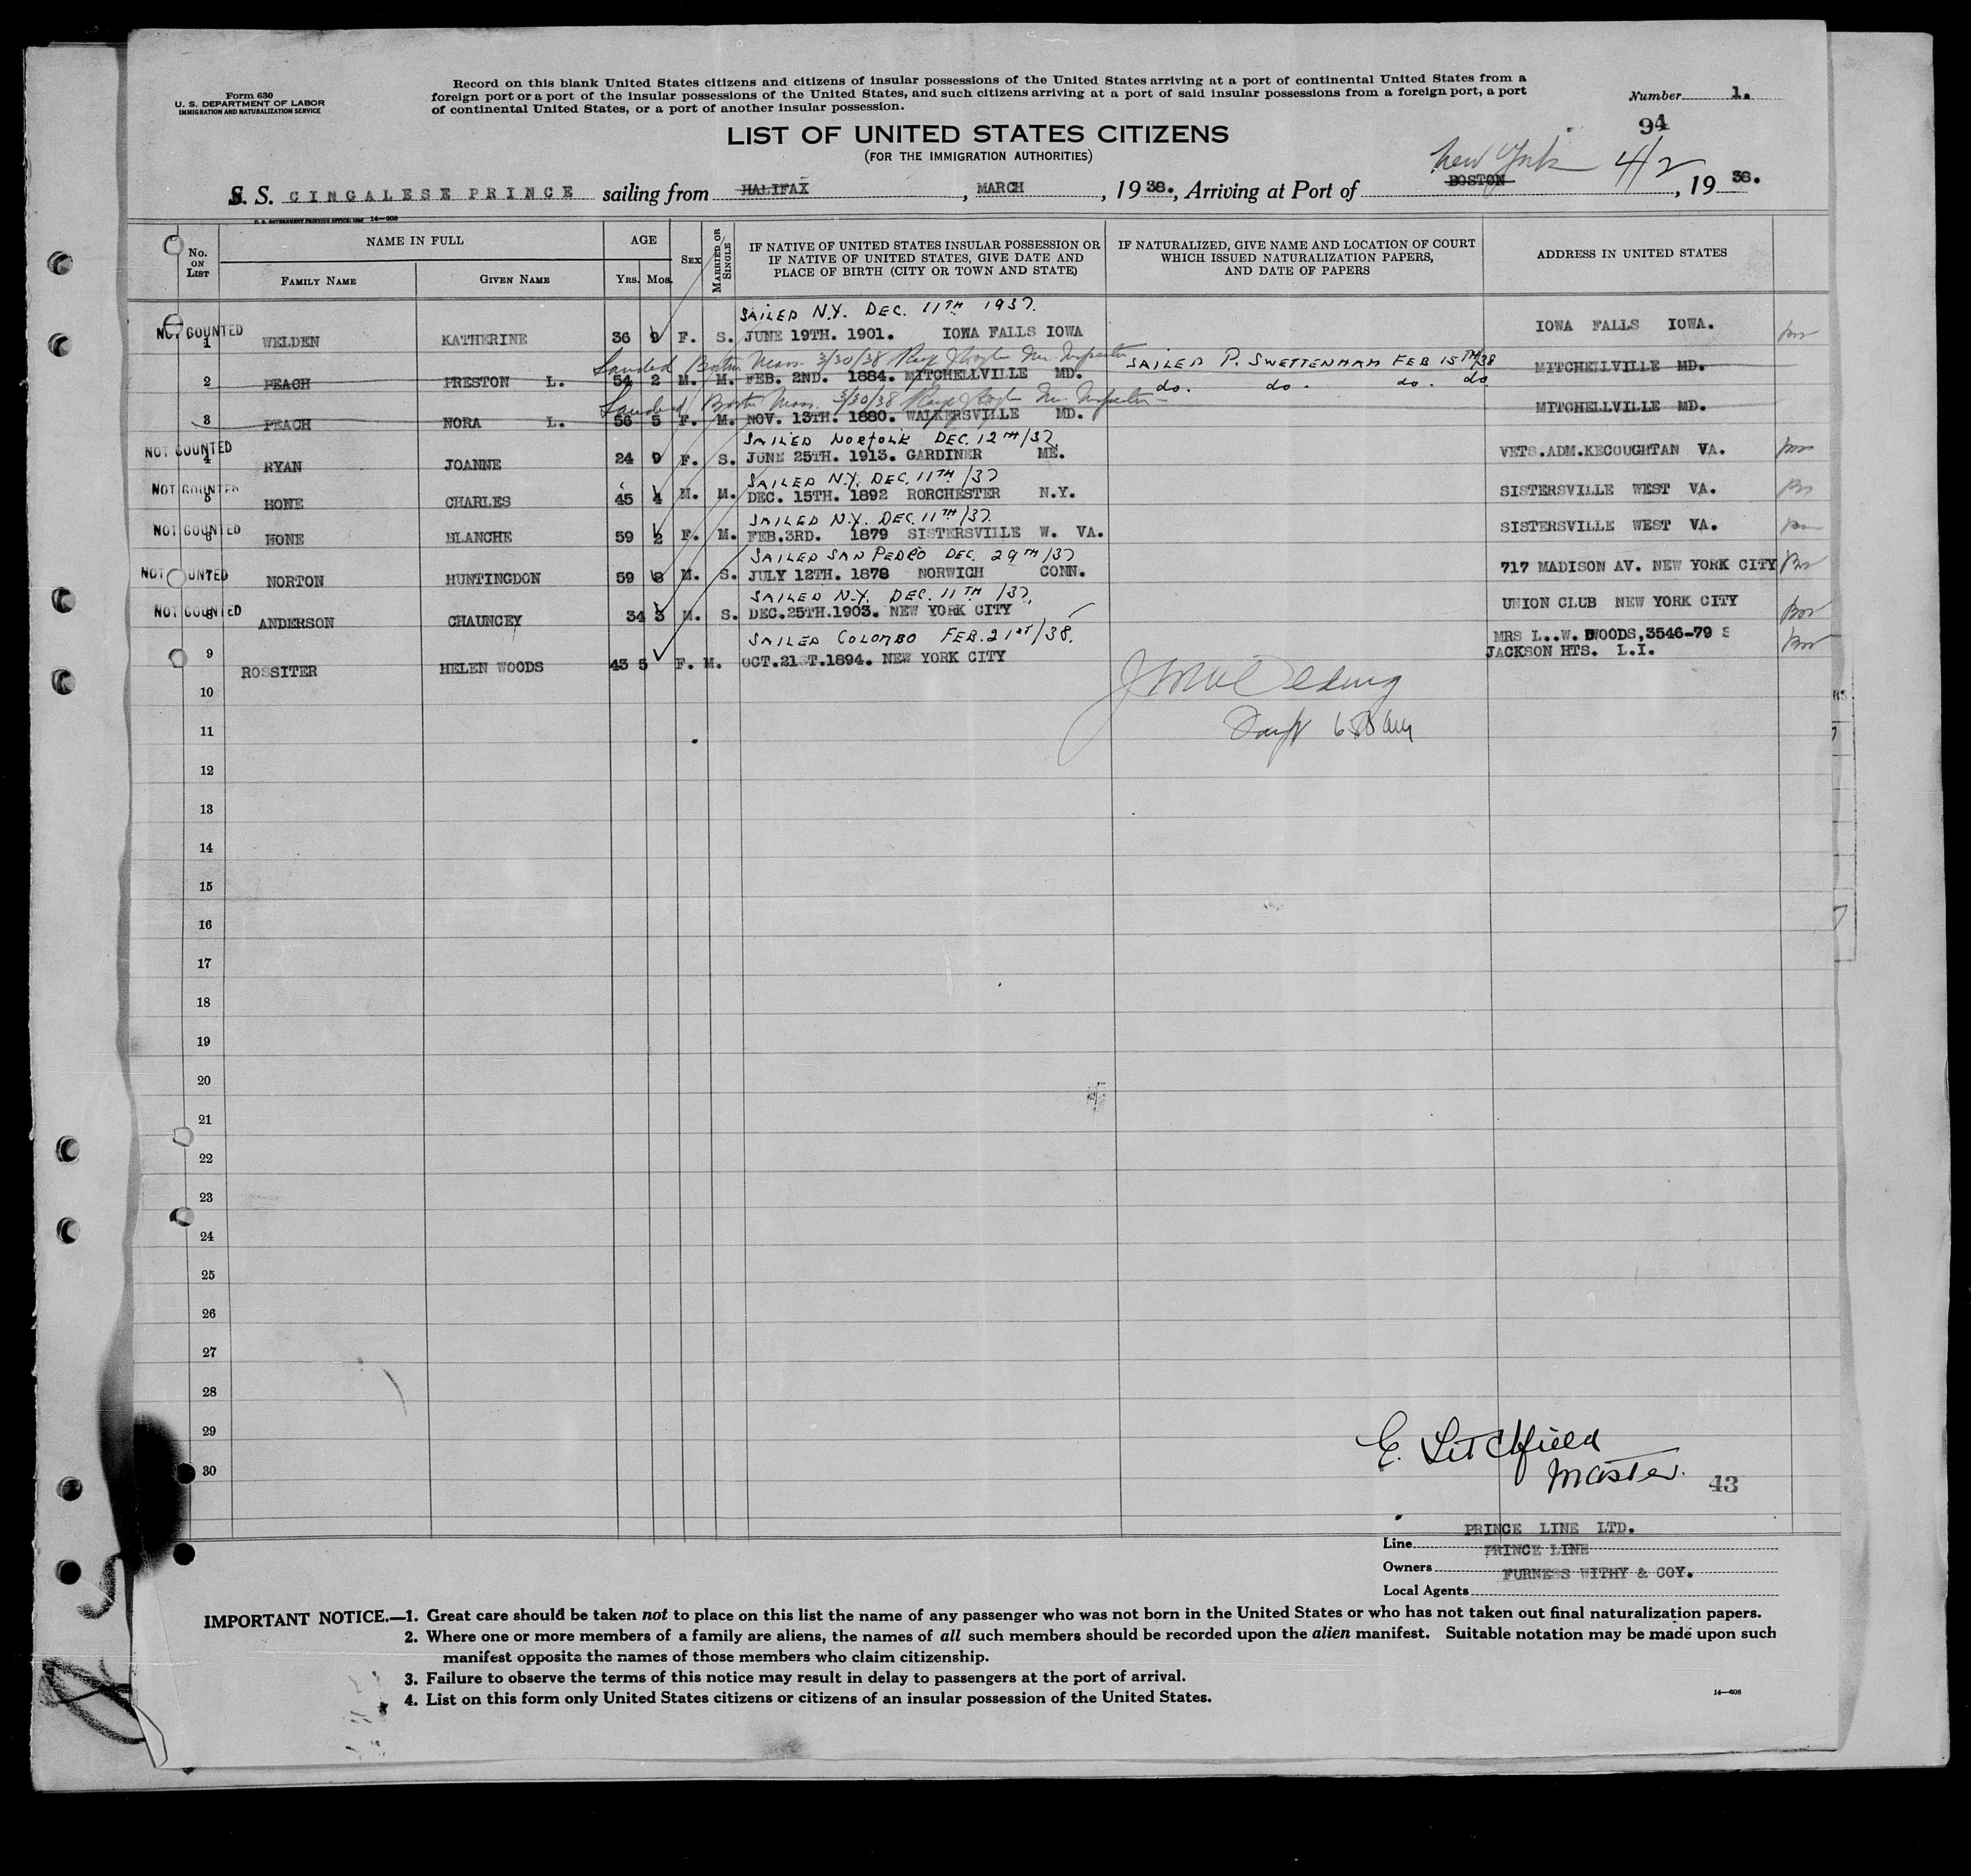 Form 630
U. S. DEPARTMENT OF LABOR
IMMIGRATION AND NATURALIZATION SERVICE
Record on this blank United States citizens and citizens of insular possessions of the United States arriving at a port of continental United States from a
foreign port or a port of the insular possessions of the United States, and such citizens arriving at a port of said insular possessions from a foreign port, a port
of continental United States, or a port of another insular possession.
Number 1.
94
LIST OF UNITED STATES CITIZENS
(FOR THE IMMIGRATION AUTHORITIES)
New York 4/2
S. S. CINGALESE PRINCE sailing from HALIFAX, MARCH, 1938., Arriving at Port of BOSTON, 1938.
U. S. GOVERNMENT PRINTING OFFICE: 14—608
No. ON LIST
NAME IN FULL
FAMILY NAME GIVEN NAME
AGE
YRS. MOS.
SEX
MARRIED OR SINGLE
IF NATIVE OF UNITED STATES INSULAR POSSESSION OR
IF NATIVE OF UNITED STATES, GIVE DATE AND
PLACE OF BIRTH (CITY OR TOWN AND STATE)
IF NATURALIZED, GIVE NAME AND LOCATION OF COURT
WHICH ISSUED NATURALIZATION PAPERS,
AND DATE OF PAPERS
ADDRESS IN UNITED STATES
SAILED N.Y. DEC. 11TH 1937.
NOT COUNTED
1 WELDEN KATHERINE 36 9 F. S. JUNE 19TH. 1901. IOWA FALLS IOWA IOWA FALLS IOWA.
Landed Boston Mass. 3/30/38 Inspector SAILED P. SWETTENHAM FEB 15TH/38
2 PEACH PRESTON L. 54 2 M. M. FEB. 2ND. 1884. MITCHELLVILLE MD. MITCHELLVILLE MD.
Landed Boston Mass. 3/30/38 Inspector do. do. do. do
3 PEACH NORA L. 56 5 F. M. NOV. 13TH. 1880. WALKERSVILLE MD. MITCHELLVILLE MD.
SAILED NORFOLK DEC. 12TH/37.
NOT COUNTED
4 RYAN JOANNE 24 9 F. S. JUNE 25TH. 1913. GARDINER ME. VETS.ADM.KECOUGHTAN VA.
SAILED N.Y. DEC. 11TH/37
NOT COUNTED
5 HONE CHARLES 45 4 M. M. DEC. 15TH. 1892 RORCHESTER N.Y. SISTERSVILLE WEST VA.
SAILED N.Y. DEC. 11TH/37.
NOT COUNTED
6 HONE BLANCHE 59 2 F. M. FEB.3RD. 1879 SISTERSVILLE W. VA. SISTERSVILLE WEST VA.
SAILED SAN PEDRO DEC. 29TH/37
NOT COUNTED
7 NORTON HUNTINGDON 59 8 M. S. JULY 12TH. 1878 NORWICH CONN. 717 MADISON AV. NEW YORK CITY
SAILED N.Y. DEC. 11TH/37.
NOT COUNTED
8 ANDERSON CHAUNCEY 34 3 M. S. DEC.25TH.1903. NEW YORK CITY UNION CLUB NEW YORK CITY
SAILED COLOMBO FEB. 21ST/38.
9 ROSSITER HELEN WOODS 43 5 F. M. OCT.21ST.1894. NEW YORK CITY MRS L..W. WOODS,3546-79 S
JACKSON HTS. L.I.
10
11
12
13
14
15
16
17
18
19
20
21
22
23
24
25
26
27
28
29
30
E. Litchfield
Master.
43
Line PRINCE LINE LTD.
Owners PRINCE LINE
Local Agents FURNESS WITHY & COY.
IMPORTANT NOTICE.—1. Great care should be taken not to place on this list the name of any passenger who was not born in the United States or who has not taken out final naturalization papers.
2. Where one or more members of a family are aliens, the names of all such members should be recorded upon the alien manifest. Suitable notation may be made upon such
manifest opposite the names of those members who claim citizenship.
3. Failure to observe the terms of this notice may result in delay to passengers at the port of arrival.
4. List on this form only United States citizens or citizens of an insular possession of the United States.
14—608